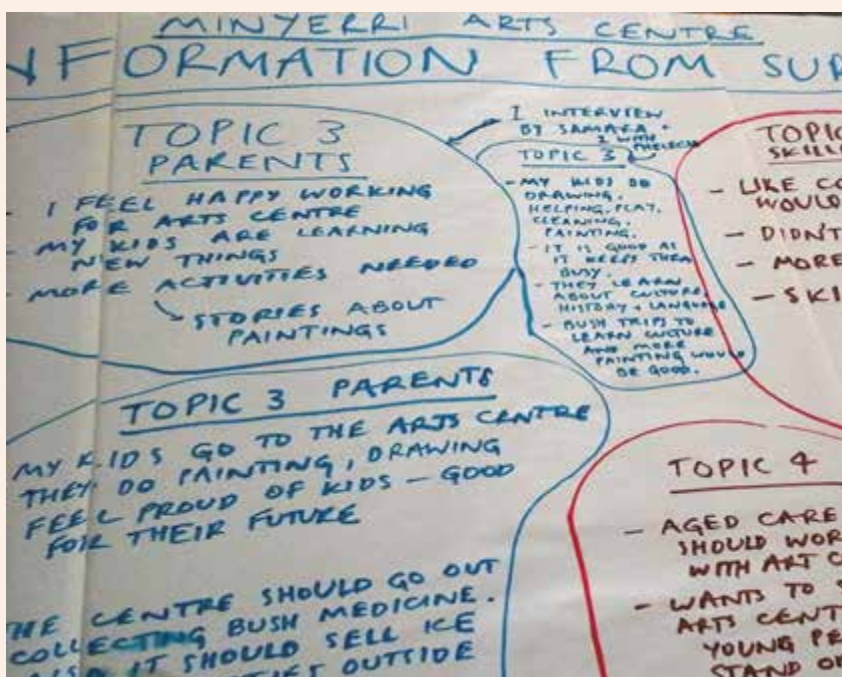 MINYERRI ARTS CENTRE
NFORMATION FROM SUR
TOPIC 3
PARENTS
- I FEEL HAPPY WORKING
FOR ARTS CENTRE
- MY KIDS ARE LEARNING
NEW THINGS
- MORE ACTIVITIES NEEDED
STORIES ABOUT
PAINTINGS
I INTERVIEW
BY SAMARA
WITH
TOPIC 3
- MY KIDS DO
DRAWING,
HELPING, PLAY,
CLEANING,
PAINTING.
- IT IS GOOD AS
IT KEEPS THEM
BUSY.
- THEY LEARN
ABOUT CULTURE,
HISTORY + LANGUAGE
- BUSH TRIPS TO
LEARN CULTURE
AND MORE
PAINTING WOULD
BE GOOD.
TOPIC
SKILL
- LIKE CO
WOULD
- DIDN'T
- MORE
- SKI
TOPIC 3 PARENTS
MY KIDS GO TO THE ARTS CENTRE
THEY DO PAINTING, DRAWING
FEEL PROUD OF KIDS - GOOD
FOR THEIR FUTURE
HE CENTRE SHOULD GO OUT
COLLECTING BUSH MEDICINE.
IT SHOULD SELL ICE
OUTSIDE
TOPIC 4
- AGED CARE
SHOULD WOR
WITH ART C
- WANTS TO
ARTS CENT
YOUNG PE
STAND